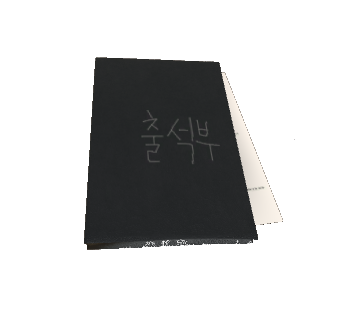 출석부